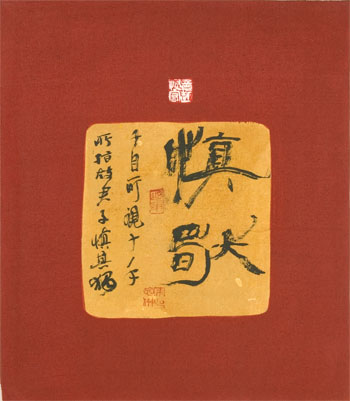 慎獨
十目所視十手
所指故君子慎其獨